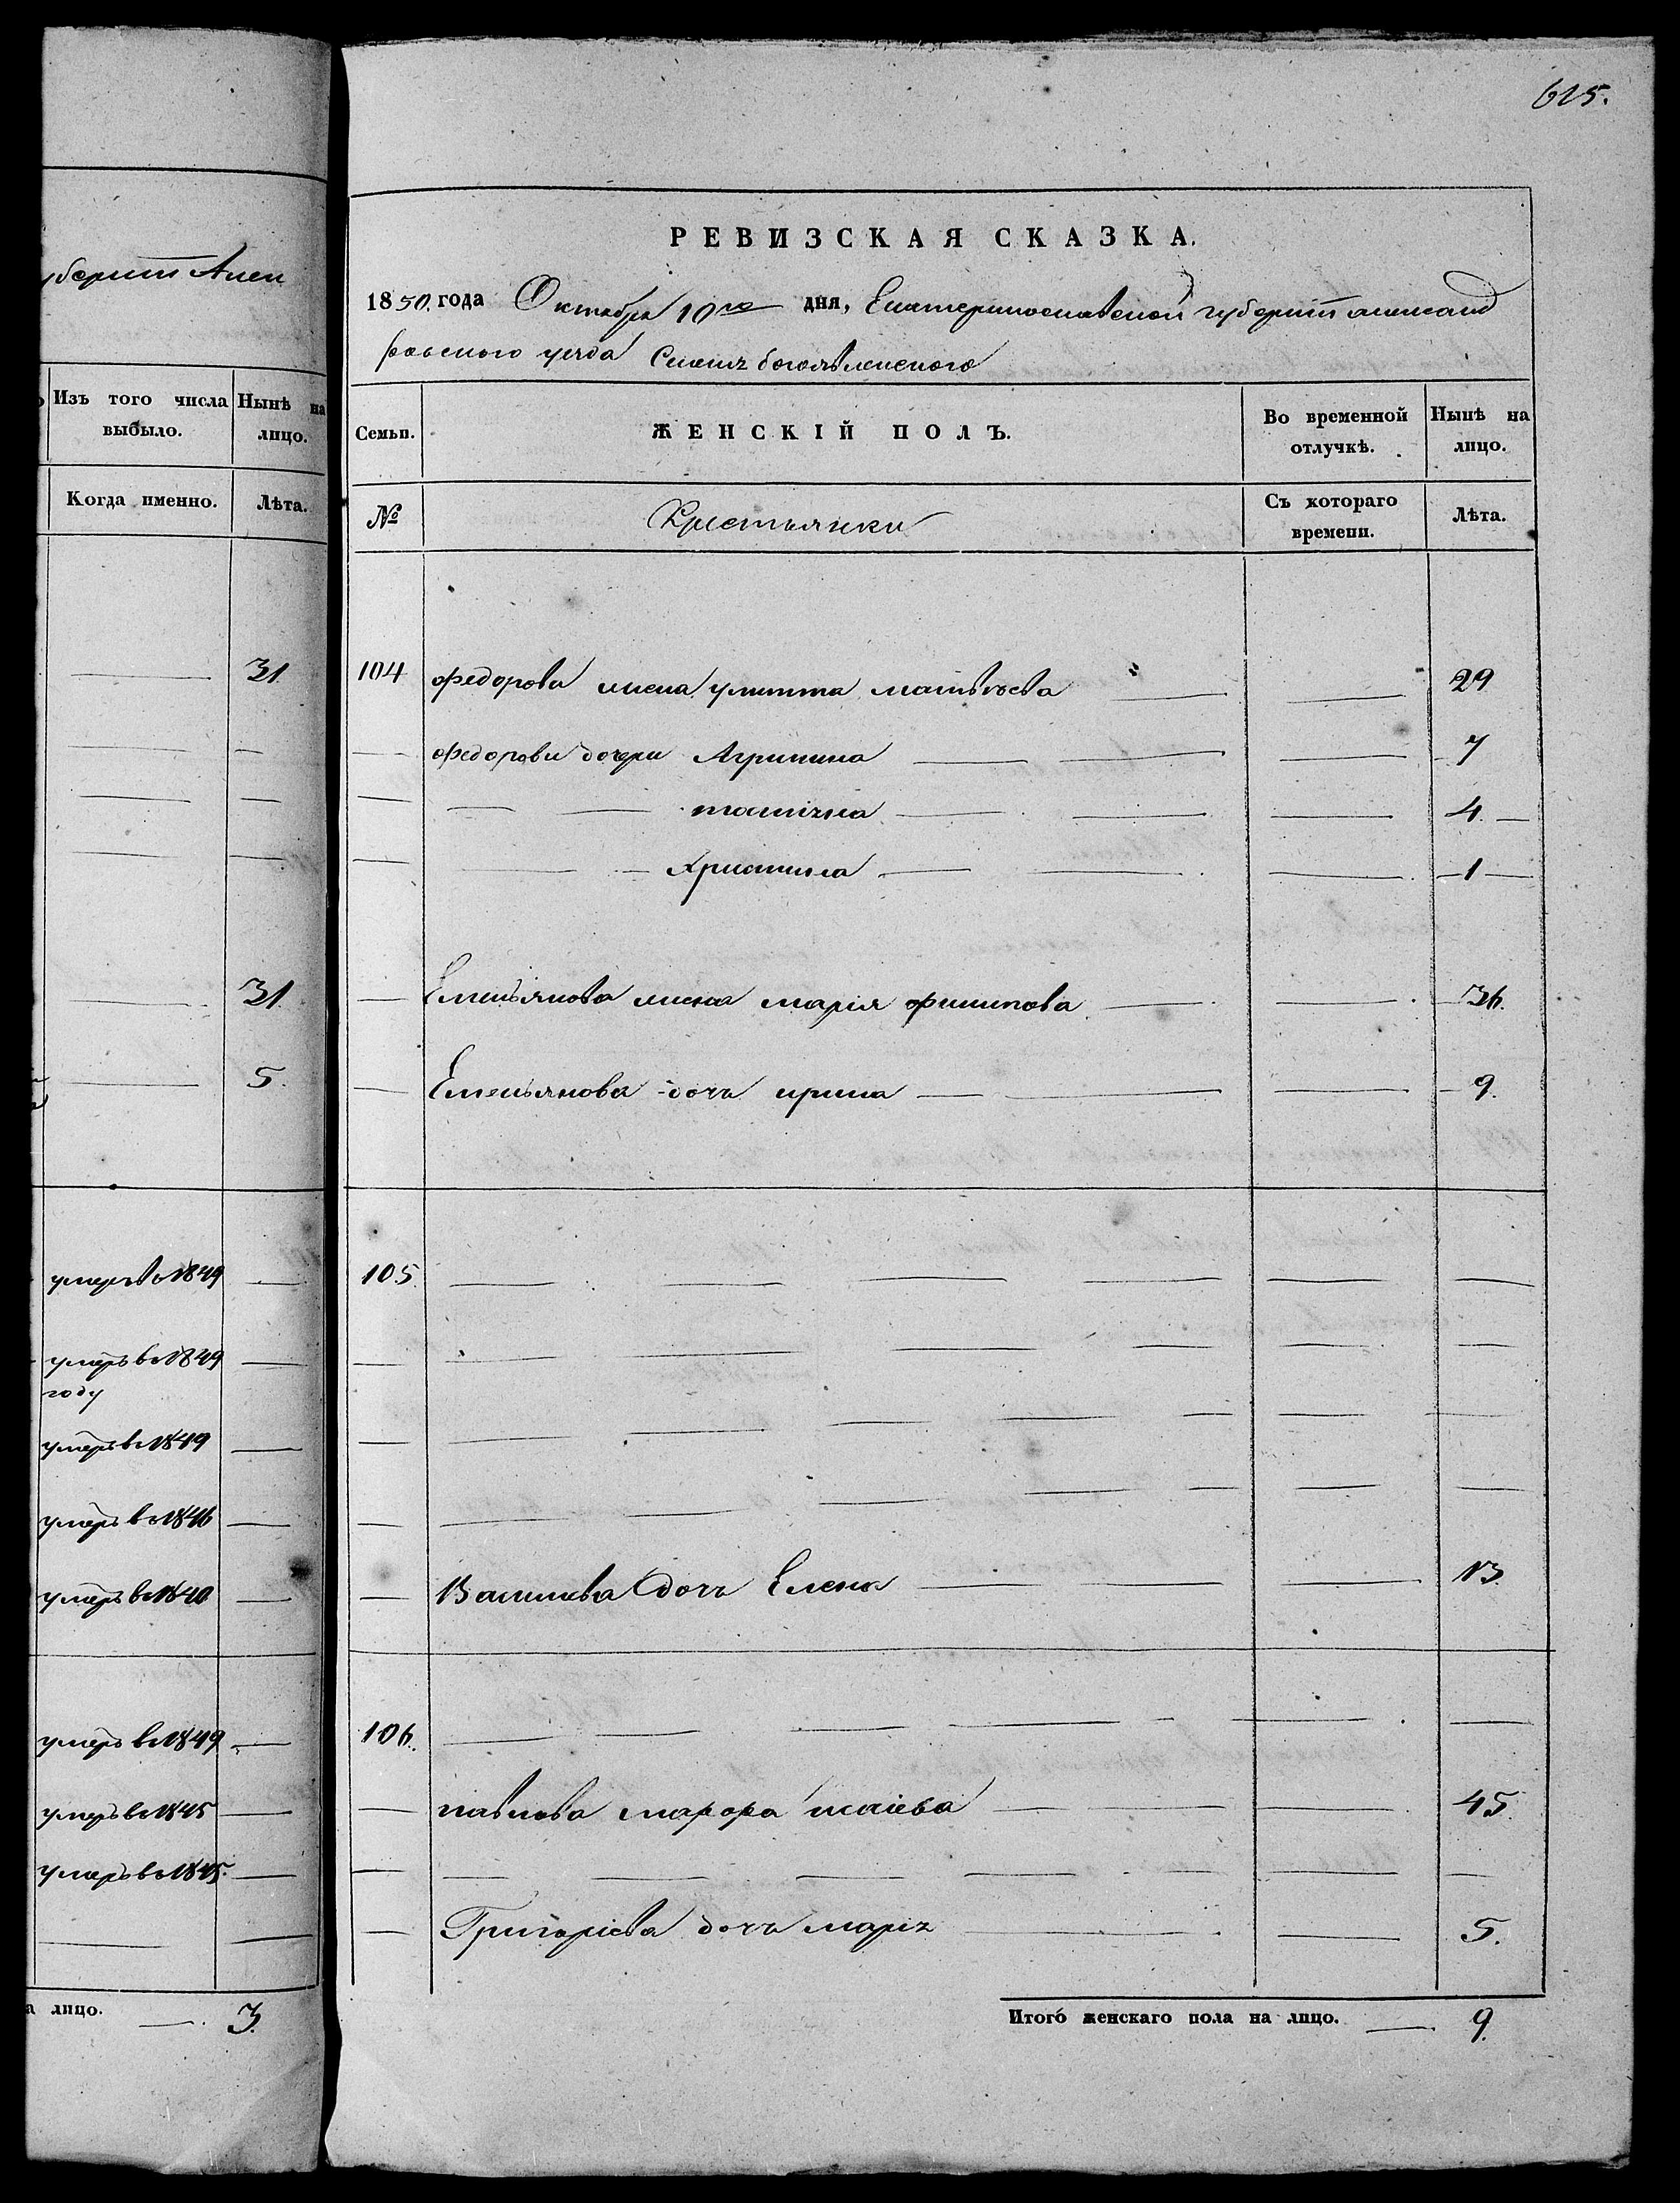 губерніи Алек
Изъ того числа выбыло.
Нынѣ на лицо.
Когда именно.
Лѣта.
31.
31.
5.
умеръ в 1849
умеръ в 1849
году
умеръ в 1849
умеръ в 1846
умеръ в 1840
умеръ в 1849
умеръ в 1845
умеръ в 1845.
а лицо. 3.
615.
РЕВИЗСКАЯ СКАЗКА.
1850. года Октября 10го дня, Екатеринославской губерніи александ
ровского уезда Села богоявленского
Семьи.
ЖЕНСКІЙ ПОЛЪ.
Во временной отлучкѣ.
Нынѣ на лицо.
№
Крестьянки
Съ котораго времени.
Лѣта.
104 федорова жена улитта матвѣева 29
федорови дочери Агрипина 7
татіяна 4.
христина 1
Емельянова жена марія филипова 36.
Емельянова дочь ирина 9.
105.
Василиева дочь Елена 13.
106.
павлова марфра исаіева 45.
Григоріева дочь марія 5.
Итого женскаго пола на лицо. 9.